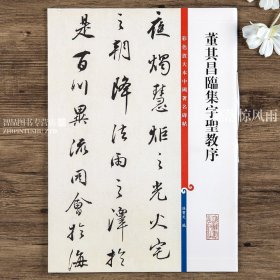 夜燭慧炬之光火宅
之朝降法雨之澤於
是百川異流同會於海
董其昌臨集字聖教序
彩色放大本中國著名碑帖
孫寶文 編